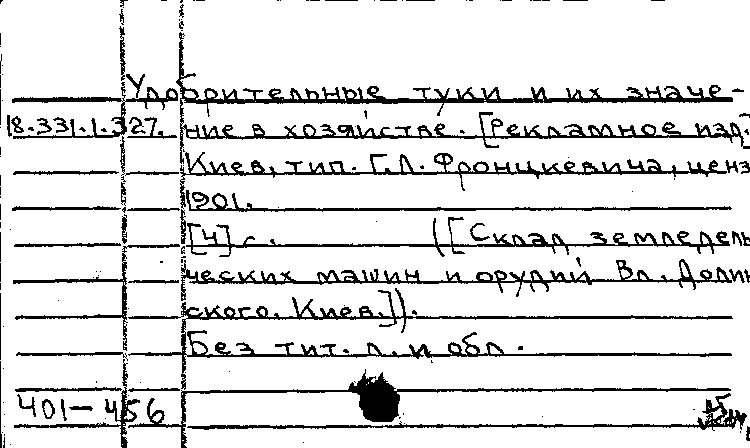 Удобрительные туки и их значе-
18.331.1.327. ние в хозяйстве. [Рекламное изд.]
Киев, тип. Г.Л. Фронцкевича, ценз.
1901.
[4] с. ([Склад земледель
ческих машин и орудий Вл. Долин
ского. Киев.]).
Без тит. л. и обл.
401-456